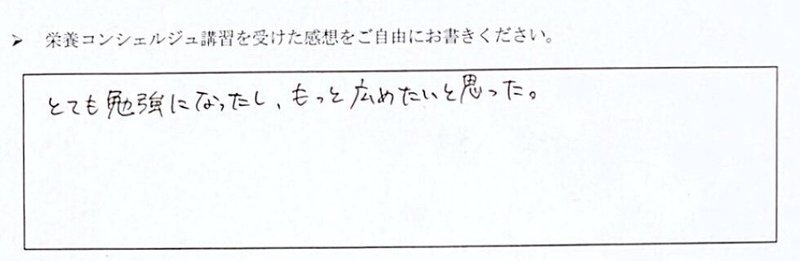 ➤ 栄養コンシェルジュ講習を受けた感想をご自由にお書きください。
とても勉強になったし、もっと広めたいと思った。